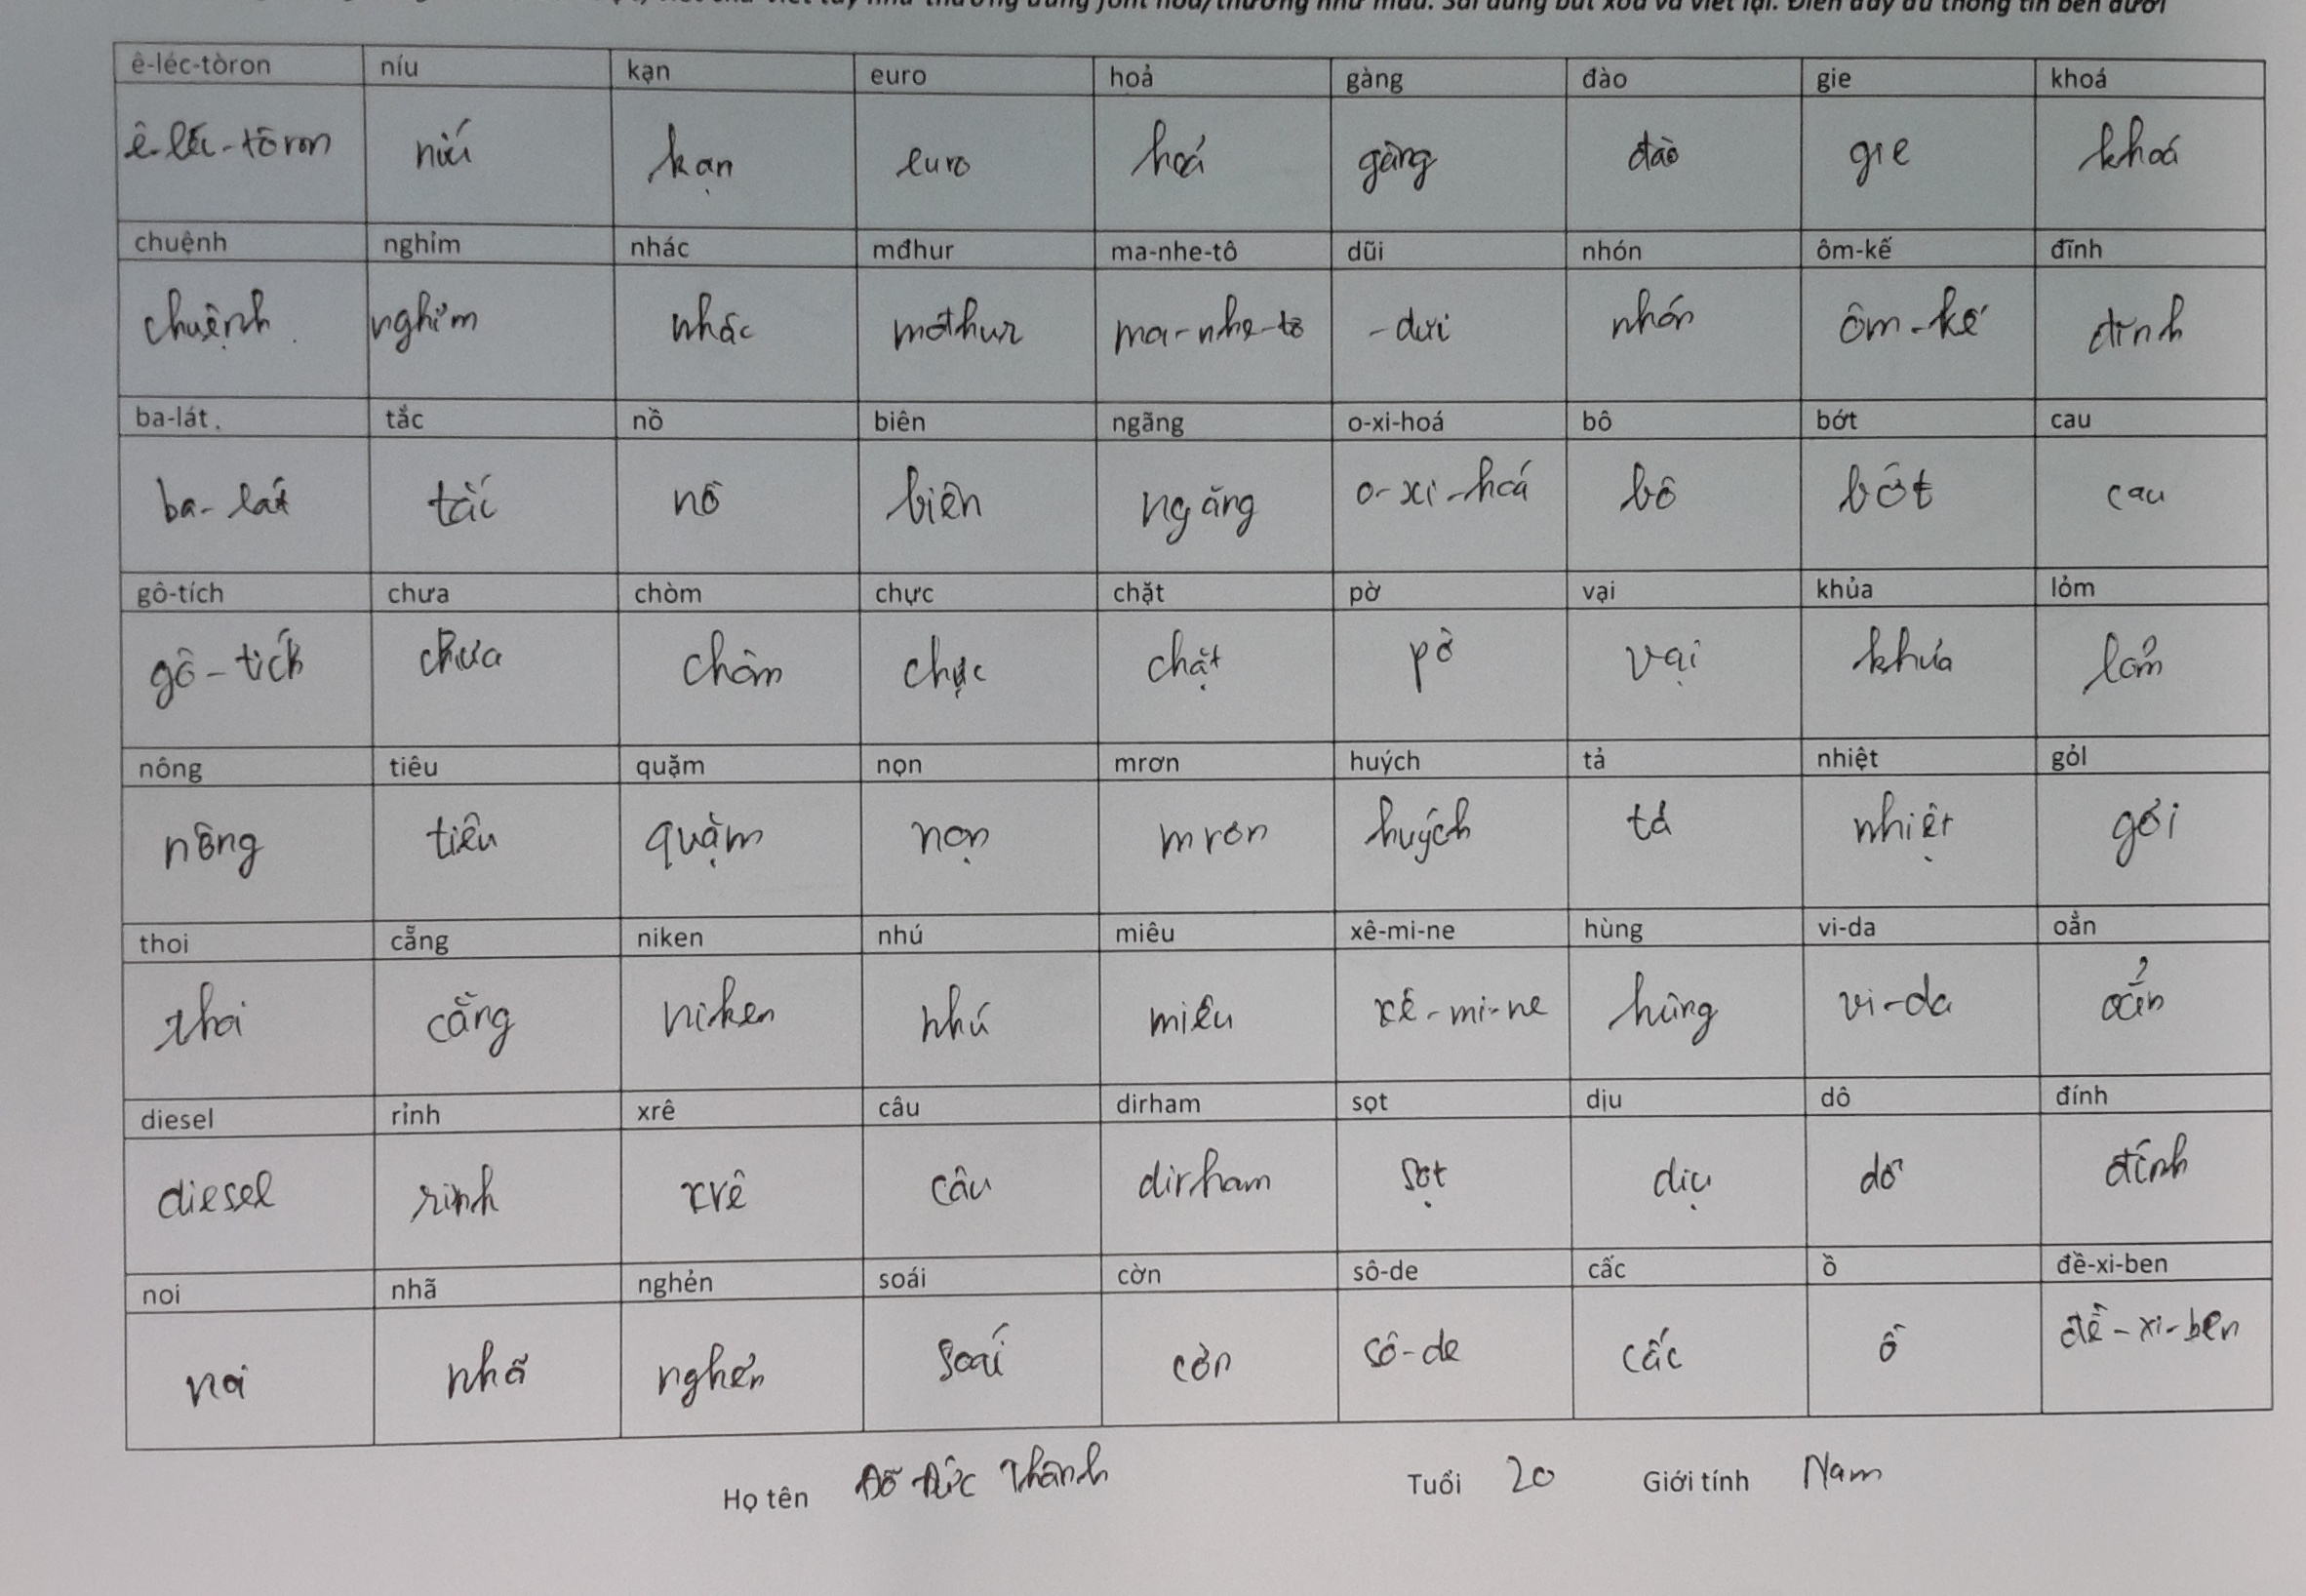 ê-léc-tòron níu kạn euro hoả gàng đào gie khoá
ê-léc-tòron níu kạn euro hoả gàng đào gie khoá
chuệnh nghỉm nhác mđhur ma-nhe-tô dũi nhón ôm-kế đĩnh
chuệnh nghỉm nhác mđhur ma-nhe-tô -dũi nhón ôm-kế đĩnh
ba-lát tắc nồ biên ngãng o-xi-hoá bô bớt cau
ba-lát tắc nồ biên ngãng o-xi-hoá bô bớt cau
gô-tích chưa chòm chực chặt pờ vại khủa lỏm
gô-tích chưa chòm chực chặt pờ vại khủa lỏm
nông tiêu quặm nọn mrơn huých tả nhiệt gỏl
nông tiêu quặm nọn mrơn huých tả nhiệt gỏi
thoi cẵng niken nhú miêu xê-mi-ne hùng vi-da oẳn
thoi cẵng niken nhú miêu xê-mi-ne hùng vi-da oẳn
diesel rỉnh xrê câu dirham sọt dịu dô đính
diesel rỉnh xrê câu dirham sọt dịu dô đính
noi nhã nghẻn soái cờn sô-de cấc ồ đề-xi-ben
noi nhã nghẻn soái cờn sô-de cấc ồ đề-xi-ben
Họ tên Đỗ Đức Thành Tuổi 20 Giới tính Nam